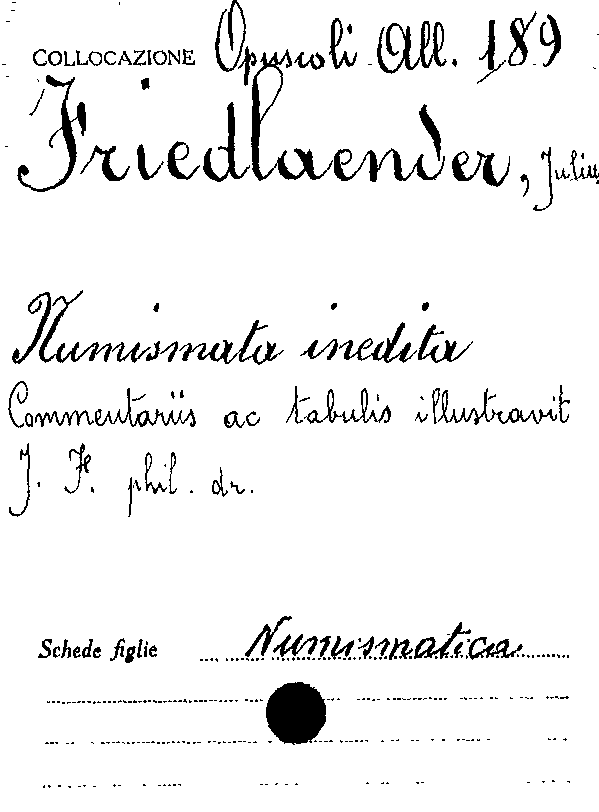 COLLOCAZIONE Opuscoli All. 189
Friedlaender, Julius
Numismata inedita
Commentariis ac tabulis illustravit
J. F. phil. dr.
Schede figlie Numismatica